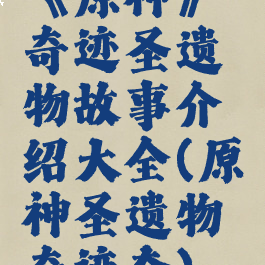 《原神》
奇迹圣遗
物故事介
绍大全(原
神圣遗物
奇迹套)